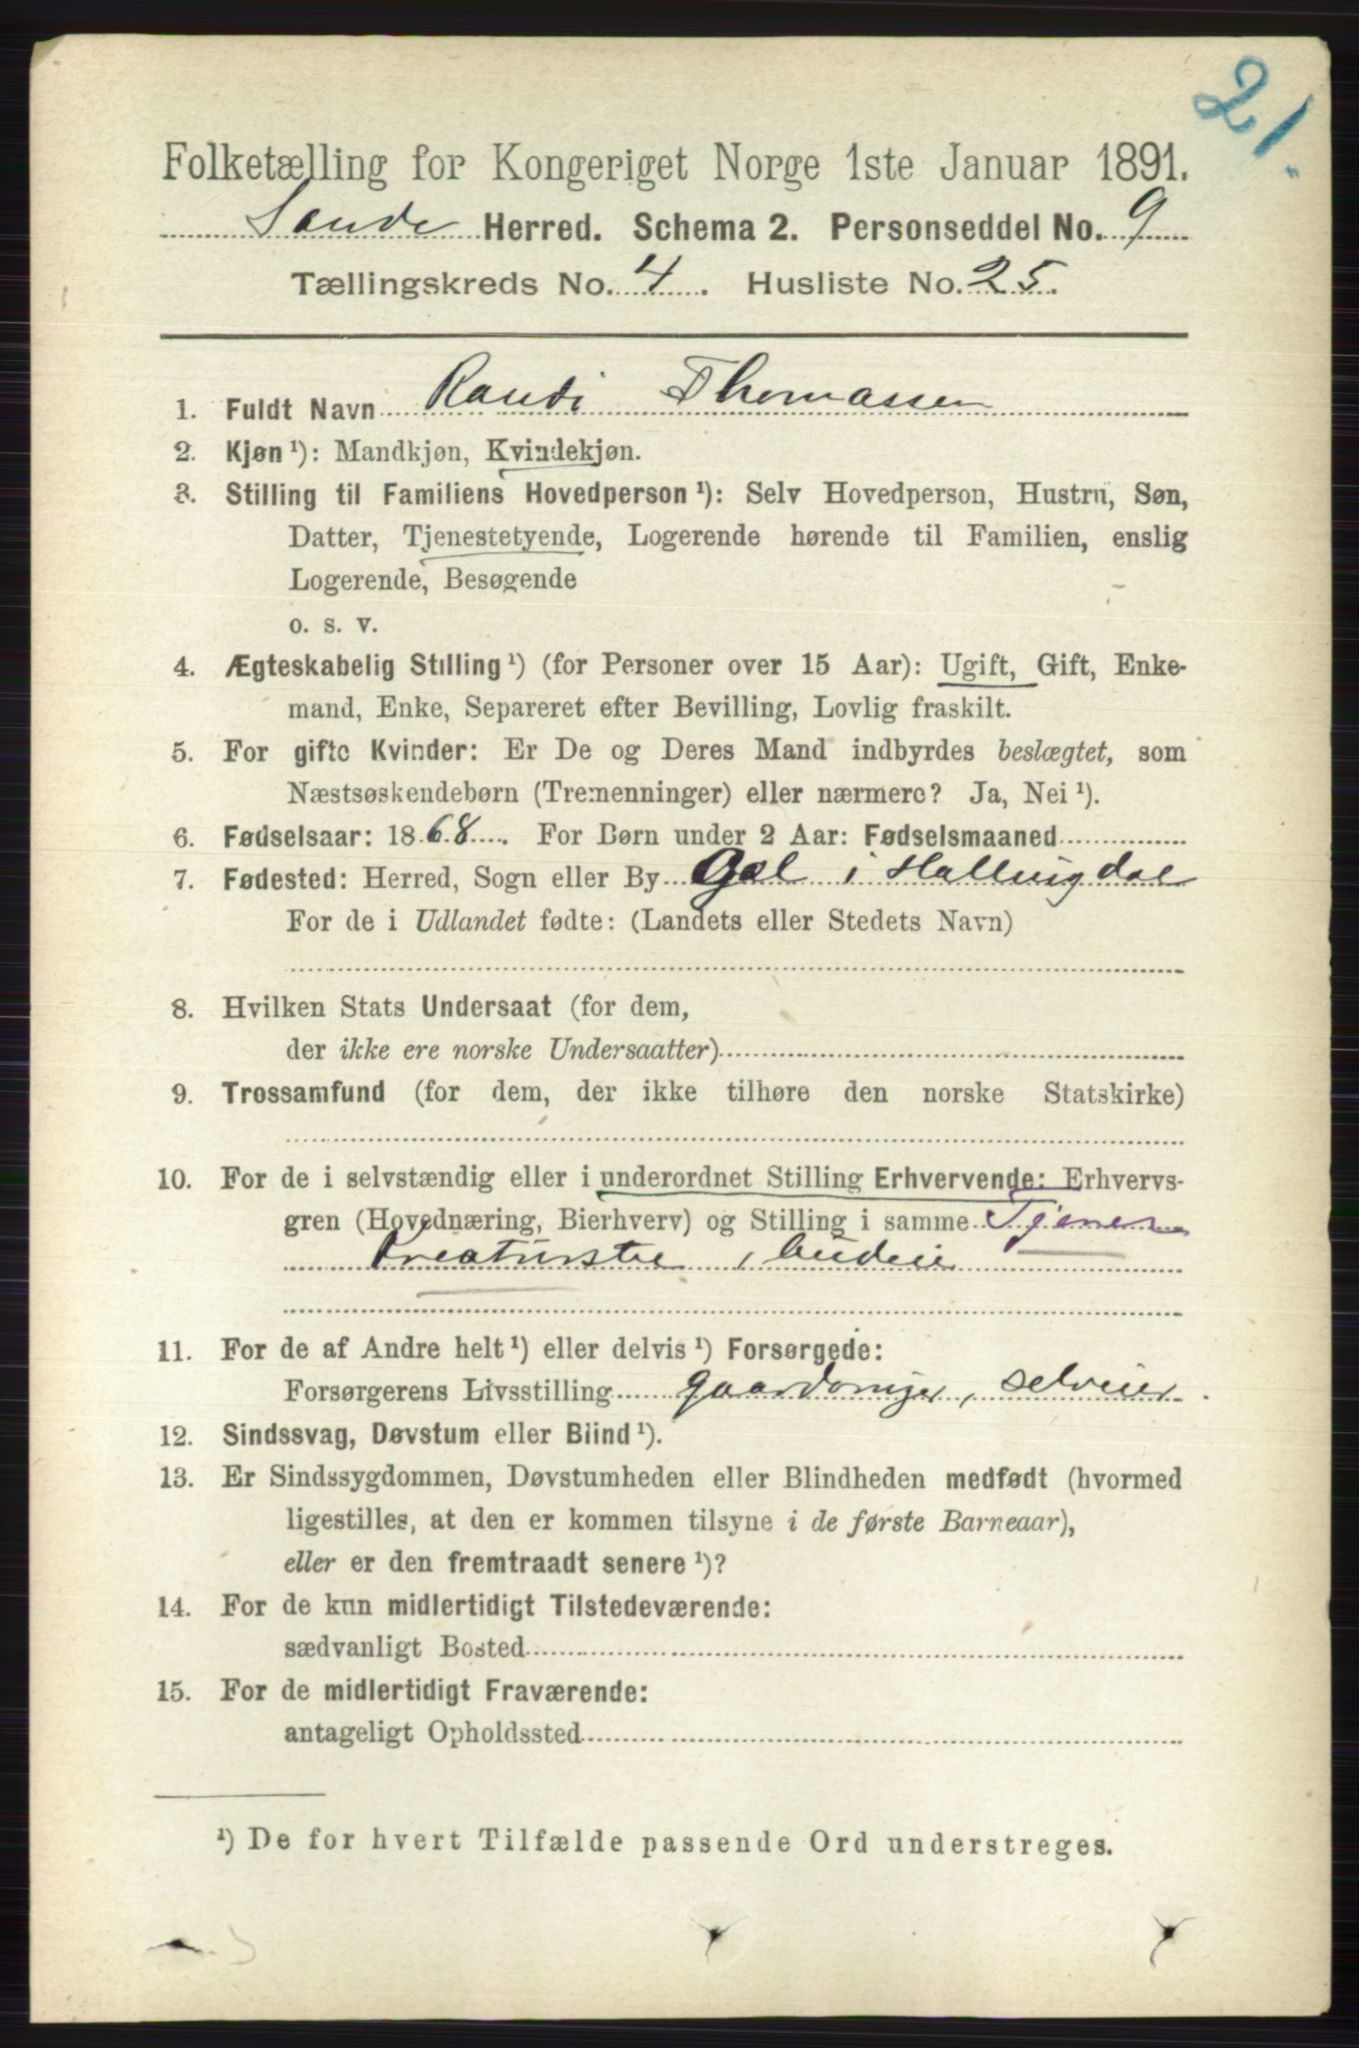 21.
Folketælling for Kongeriget Norge 1ste Januar 1891.
Sande Herred. Schema 2. Personseddel No. 9
Tællingskreds No. 4. Husliste No. 25.
1. Fuldt Navn Randi Thomassen
2. Kjøn ¹): Mandkjøn, Kvindekjøn.
3. Stilling til Familiens Hovedperson ¹): Selv Hovedperson, Hustru, Søn,
Datter, Tjenestetyende, Logerende hørende til Familien, enslig
Logerende, Besøgende
o. s. v.
4. Ægteskabelig Stilling ¹) (for Personer over 15 Aar): Ugift, Gift, Enke-
mand, Enke, Separeret efter Bevilling, Lovlig fraskilt.
5. For gifte Kvinder: Er De og Deres Mand indbyrdes beslægtet, som
Næstsøskendebørn (Tremenninger) eller nærmere? Ja, Nei ¹).
6. Fødselsaar: 1868. For Børn under 2 Aar: Fødselsmaaned
7. Fødested: Herred, Sogn eller By Gol i Hallingdal
For de i Udlandet fødte: (Landets eller Stedets Navn)
8. Hvilken Stats Undersaat (for dem,
der ikke ere norske Undersaatter)
9. Trossamfund (for dem, der ikke tilhøre den norske Statskirke)
10. For de i selvstændig eller i underordnet Stilling Erhvervende: Erhvervs-
gren (Hovednæring, Bierhverv) og Stilling i samme Tjenes
Kreaturstel, budeie
11. For de af Andre helt ¹) eller delvis ¹) Forsørgede:
Forsørgerens Livsstilling gaardbruger, selveier.
12. Sindssvag, Døvstum eller Blind ¹).
13. Er Sindssygdommen, Døvstumheden eller Blindheden medfødt (hvormed
ligestilles, at den er kommen tilsyne i de første Barneaar),
eller er den fremtraadt senere ¹)?
14. For de kun midlertidigt Tilstedeværende:
sædvanligt Bosted
15. For de midlertidigt Fraværende:
antageligt Opholdssted
¹) De for hvert Tilfælde passende Ord understreges.